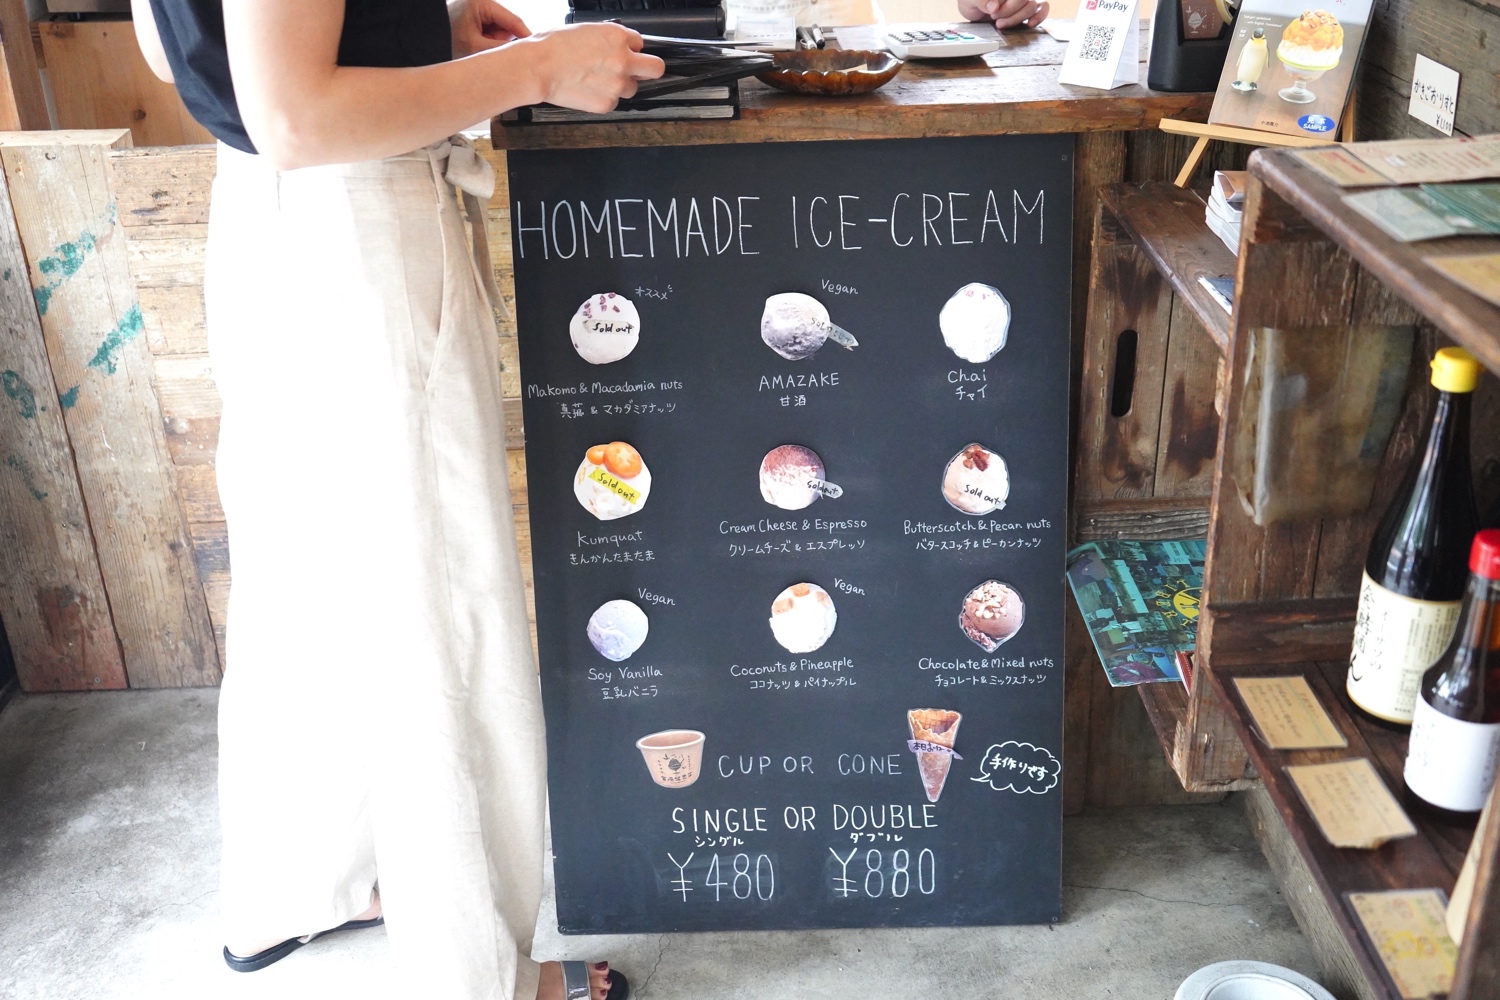 PayPay
見本
SAMPLE
かき氷おりすと
HOMEMADE ICE-CREAM
オススメ
Sold out
Makomo & Macadamia nuts
真菰 & マカダミアナッツ
Vegan
Sold out
AMAZAKE
甘酒
Chai
チャイ
Sold out
Kumquat
きんかんたまたま
Sold out
Cream Cheese & Espresso
クリームチーズ & エスプレッソ
Sold out
Butterscotch & Pecan nuts
バタースコッチ & ピーカンナッツ
Vegan
Soy Vanilla
豆乳バニラ
Vegan
Coconuts & Pineapple
ココナッツ & パイナップル
Chocolate & Mixed nuts
チョコレート & ミックスナッツ
CUP OR CONE
手作りです
SINGLE OR DOUBLE
シングル ダブル
¥480 ¥880